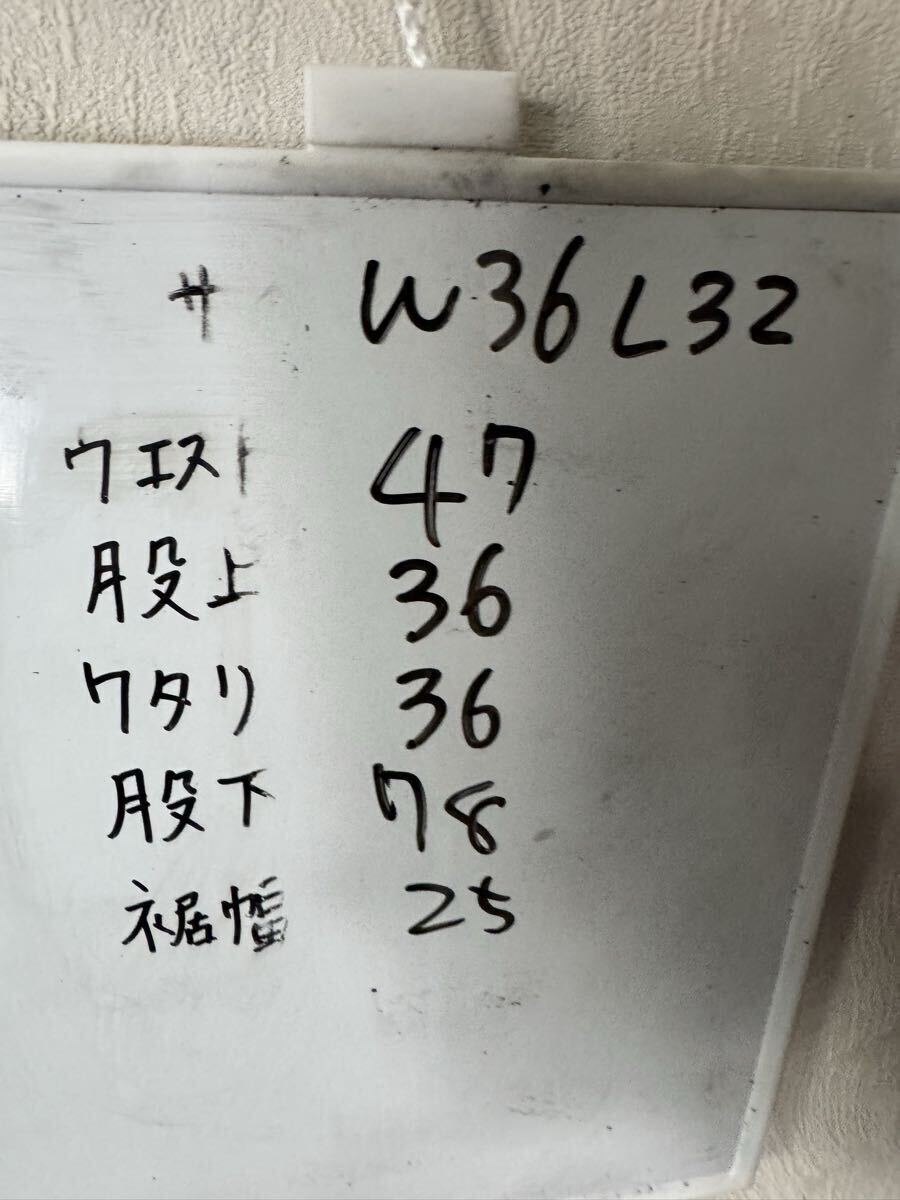 サ W36L32
ウエスト 47
股上 36
ワタリ 36
股下 78
裾幅 25